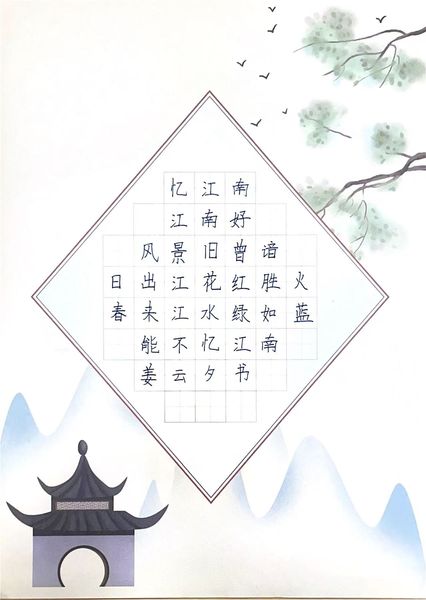 忆江南
江南好
风景旧曾谙
日出江花红胜火
春来江水绿如蓝
能不忆江南
姜云夕书